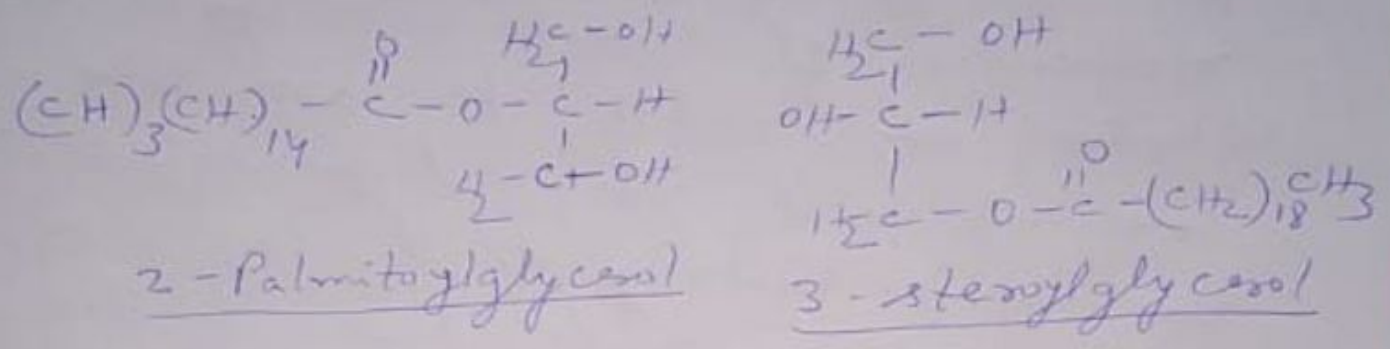 O
||
(CH)3(CH)14 - C - O - C - H
H2C - OH
H2 - C - OH
2 - Palmitoylglycerol
H2C - OH
OH - C - H
O
||
H2C - O - C - (CH2)18CH3
3 - steroylglycerol